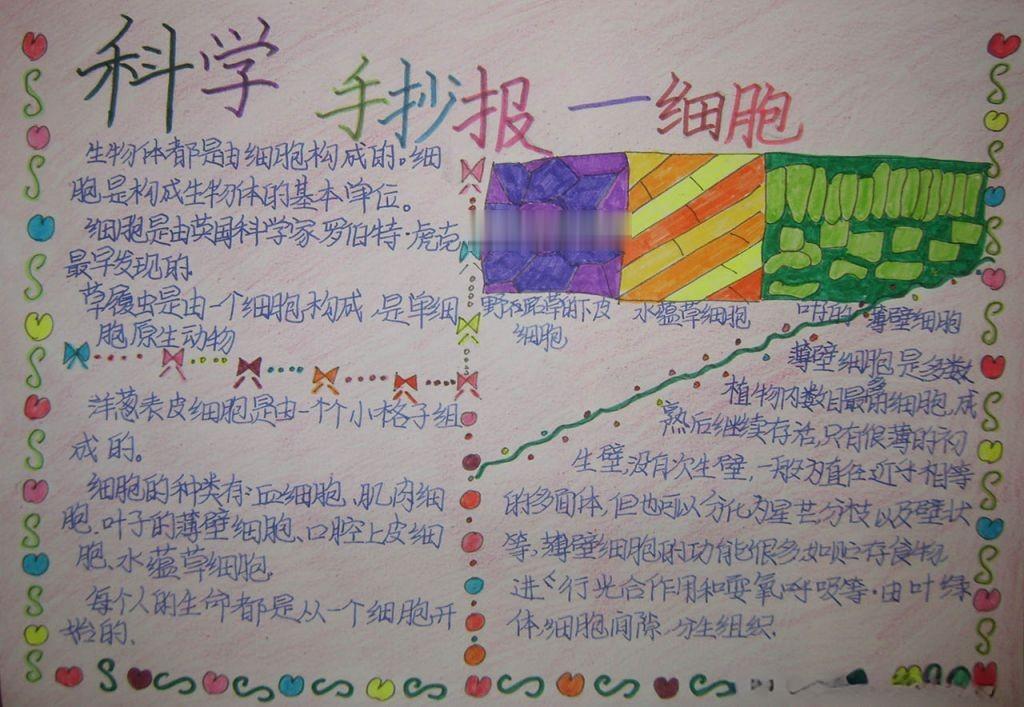 科学
手抄报—细胞
生物体都是由细胞构成的。细
胞是构成生物体的基本单位。
细胞是由英国科学家罗伯特·虎克
最早发现的.
草履虫是由一个细胞构成,是单细
胞原生动物
洋葱表皮细胞是由一个个小格子组
成的。
细胞的种类有:血细胞、肌肉细
胞、叶子的薄壁细胞、口腔上皮细
胞、水蕴草细胞.
每个人的生命都是从一个细胞开
始的.
草的下皮
细胞
水蕴草细胞
叶的 薄壁细胞
薄壁细胞是多数
植物内数目最多的细胞,成
熟后继续存活,只有很薄的初
生壁,没有次生壁,一般为直径近乎相等
的多面体,但也可以分化为星芒分枝以及壁状
等,薄壁细胞的功能很多,如贮存食物
进行光合作用和需氧呼吸等.由叶绿
体,细胞间隙,分生组织.